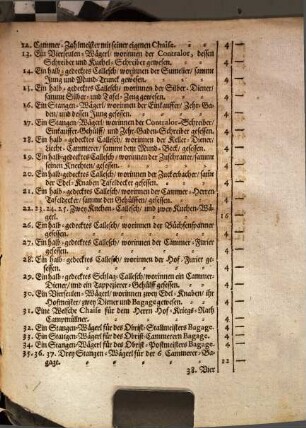 12. Cammer-Zahlmeister mit seiner eigenen Chaisa. 4 —
13. Ein Vierseuten-Wägerl/ worinnen der Contralor, dessen
Schreiber und Kuchel-Schreiber gewesen. 4 —
14. Ein halb-gedecktes Callesch/ worinnen der Sumelier/ sammt
Jung und Mund-Trunck gewesen. 4 —
15. Ein halb-gedecktes Callesch/ worinnen der Silber-Diener/
sammt Silber- und Tafel-Zeug gewesen. 4 —
16. Ein Stangen-Wägerl/ worinnen der Einkauffer/ Zehr-Gaden/
und dessen Jung gesessen. 4 —
17. Ein Stangen-Wägerl/ worinnen der Contralor-Schreiber/
Einkauffer-Gehülff/ und Zehr-Gaden-Schreiber gesessen. 4 —
18. Ein halb-gedecktes Callesch/ worinnen der Keller-Diener/
Liecht-Cammerer/ sammt dem Mund-Beck/ gesessen. 4 —
19. Ein halb-gedecktes Callesch/ worinnen der Zuschrotter/ sammt
seinen Knechten/ gesessen. 4 —
20. Ein halb-gedecktes Callesch/ worinnen der Zuckerbacher/ sammt
der Edl-Knaben Tafeldecker gesessen. 4 —
21. Ein halb-gedecktes Callesch/ worinnen der Cammer-Herren
Tafeldecker/ sammt den Gehülffen/ gesessen. 4 —
22. 23. 24. 25. Zwey Kuchen-Callesch/ und zwey Kuchen-Wägerl. 16 —
26. Ein halb-gedecktes Callesch/ worinnen der Büchsenspanner
gesessen. 4 —
27. Ein halb-gedecktes Callesch/ worinnen der Cammer-Furier
gesessen. 4 —
28. Ein halb-gedecktes Callesch/ worinnen der Hof-Furier gesessen. 4 —
29. Ein halb-gedecktes Schlag-Callesch/ worinnen ein Cammer-
Diener/ und ein Tappezierer-Gehülff gesessen. 4 —
30. Ein Vierseuten-Wägerl/ worinnen zwey Edel-Knaben/ ihr
Hofmeister/ zwey Diener und Bagage gewesen. 4 —
31. Eine Welsche Chaisa für dem Herrn Hof-Kriegs-Rath
Campmüllner. 4 —
32. Ein Stangen-Wägerl für des Obrist-Stallmeisters Bagage. 4 —
33. Ein Stangen-Wägerl für des Obrist-Cammerers Bagage. 4 —
34. Ein Stangen-Wägerl für des Obrist-Postmeisters Bagage. 4 —
35. 36. 37. Drey Stangen-Wägerl für der 6. Cammerer-Bagage. 12 —
38. Vier